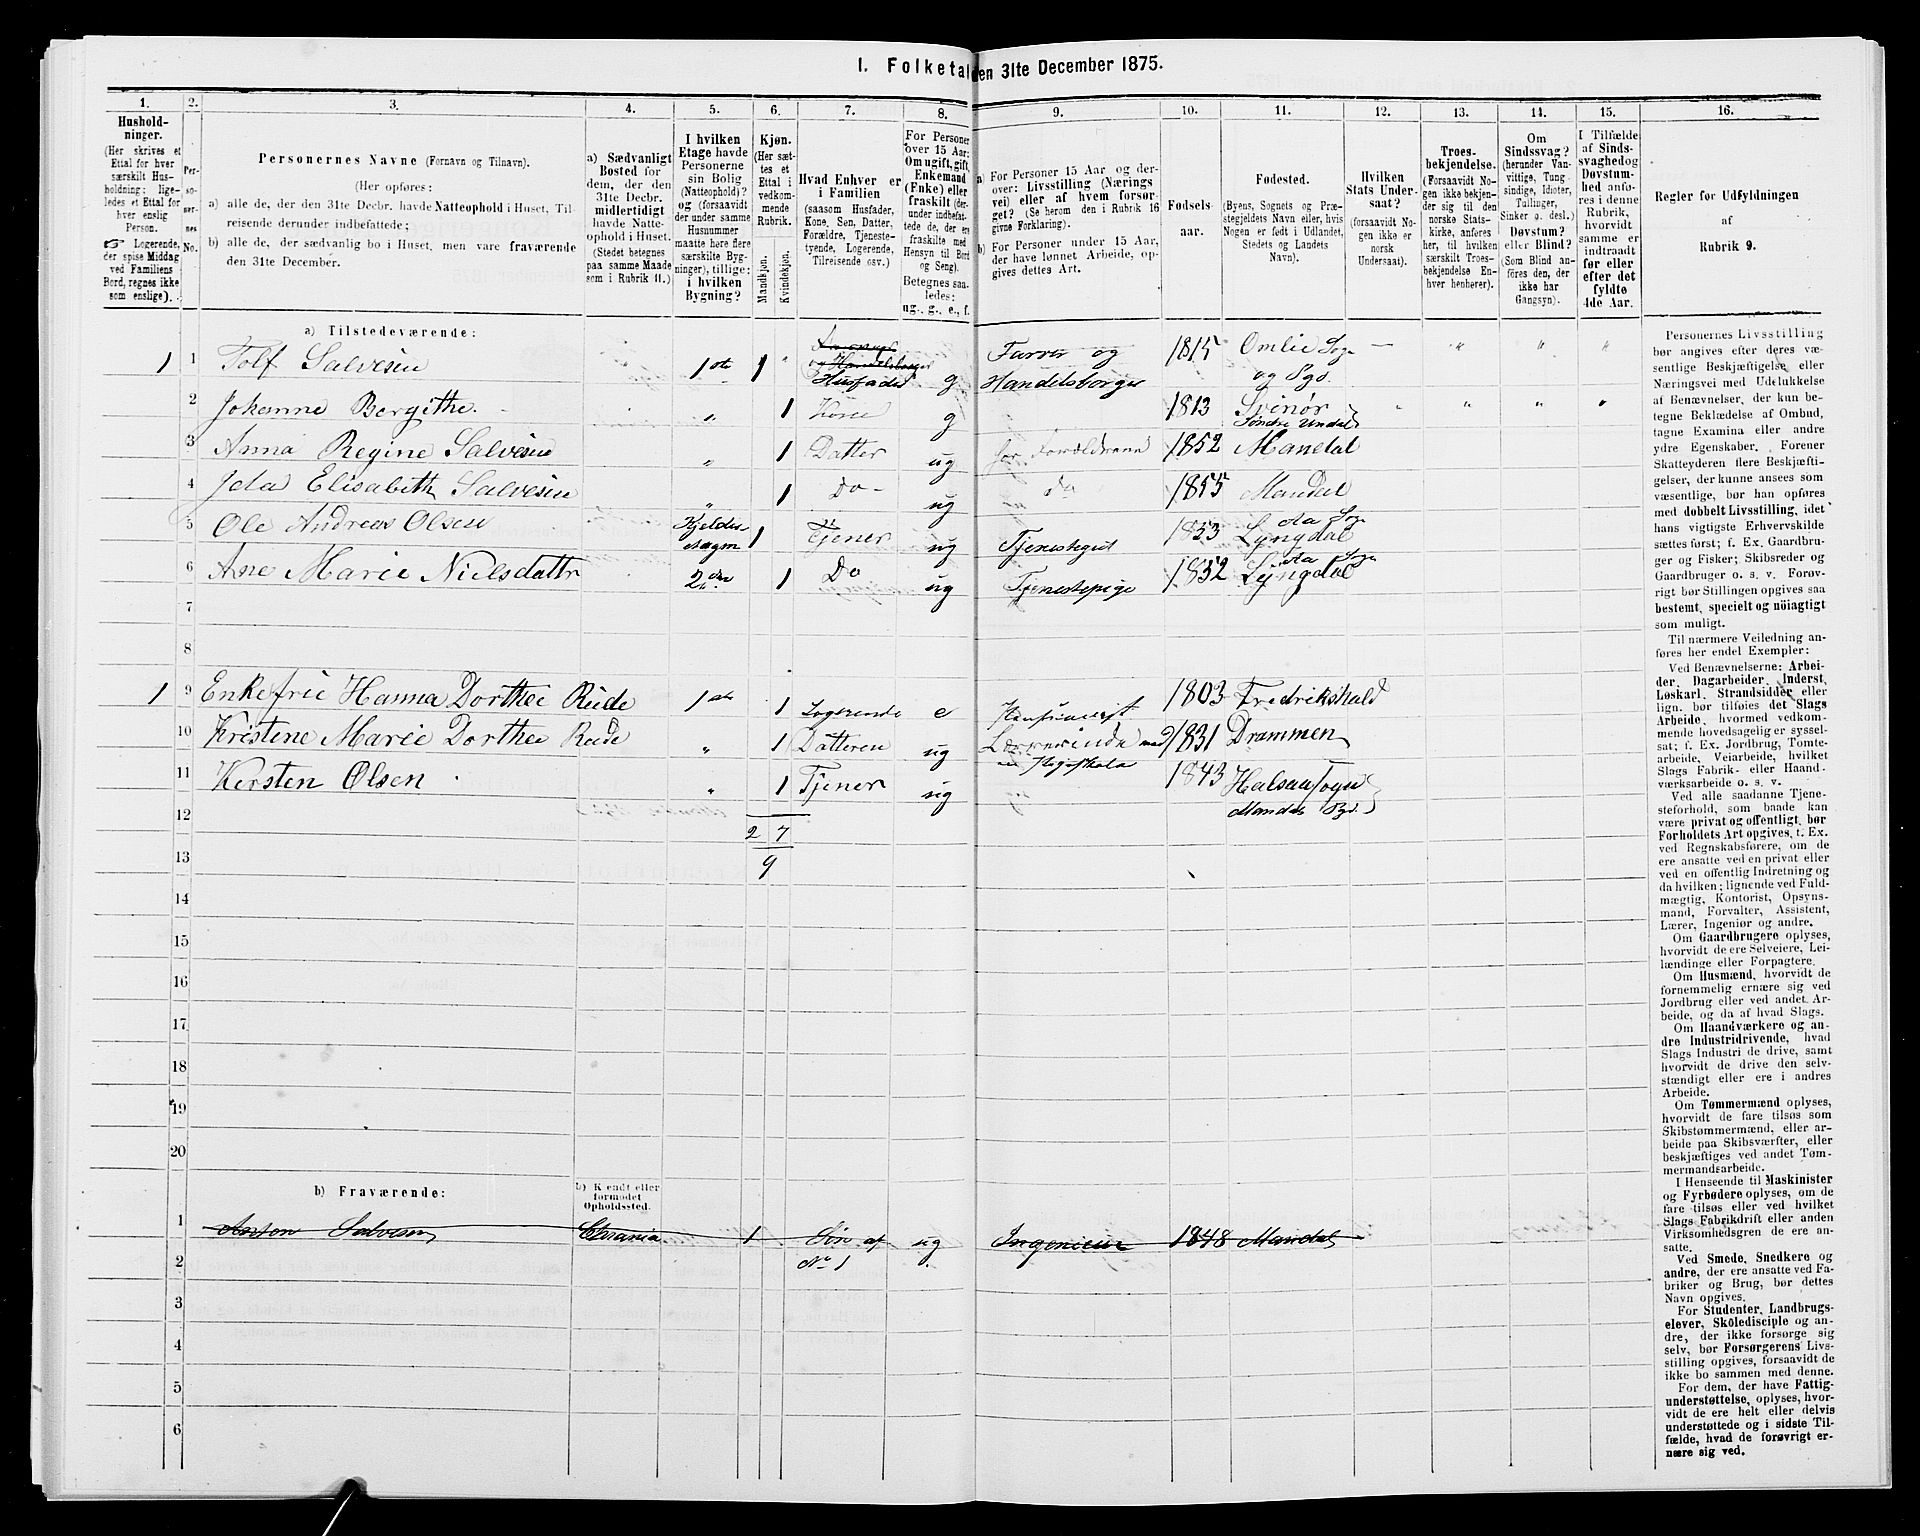 I. Folketal den 31te December 1875.
1. 2. 3. 4. 5. 6. 7. 8. 9. 10. 11. 12. 13. 14. 15. 16.
Hushold-
ninger.
(Her skrives et
Ettal for hver
særskilt Hus-
holdning; lige-
ledes et Ettal for
hver enslig
Person.
☞ Logerende,
der spise Middag
ved Familiens
Bord, regnes ikke
som enslige).
Per-
so-
ner-
nes
No.
Personernes Navne (Fornavn og Tilnavn).
(Her opføres:
a) alle de, der den 31te Decbr. havde Natteophold i Huset, Til-
reisende derunder indbefattede;
b) alle de, der sædvanlig bo i Huset, men vare fraværende
den 31te December.)
a) Sædvanligt
Bosted for
dem, der den
31te Decbr.
midlertidigt
havde Natte-
ophold i Huset.
(Stedet betegnes
paa samme Maade
som i Rubrik 11.)
I hvilken
Etage havde
Personerne
sin Bolig
(Natteophold)?
og (forsaavidt
der under samme
Husnummer
maatte høre flere
særskilte Byg-
ninger), tillige:
i hvilken
Bygning?
Kjøn.
(Her sæt-
tes et
Ettal i
vedkom-
mende
Rubrik.
Mandkjøn.
Kvindekjøn.
Hvad Enhver er
i Familien
(saasom Husfader,
Kone, Søn, Datter,
Forældre, Tjeneste-
tyende, Logerende,
Tilreisende osv.)
For Personer
over 15 Aar:
Om ugift, gift,
Enkemand
(Enke) eller
fraskilt (der-
under indbefat-
tede de, der ere
fraskilte med
Hensyn til Bord
og Seng).
Betegnes saa-
ledes:
ug., g., e., f.
a) For Personer 15 Aar og der-
over: Livsstilling (Nærings
vei) eller af hvem forsør-
get? (Se herom den i Rubrik 16
givne Forklaring).
b) For Personer under 15 Aar,
der have lønnet Arbeide, op-
gives dettes Art.
Fødsels-
aar.
Fødested.
(Byens, Sognets og Præ-
stegjeldets Navn eller, hvis
Nogen er født i Udlandet,
Stedets og Landets
Navn).
Hvilken
Stats Under-
saat?
(forsaavidt No-
gen ikke er
norsk
Undersaat).
Troes-
bekjendelse.
(Forsaavidt No-
gen ikke bekjen-
der sig til den
norske Stats-
kirke, anføres
her, til hvilken
særskilt Troes-
bekjendelse En-
hver henhører).
Om
Sindssvag?
(herunder Van-
vittige, Tung-
sindige, Idioter,
Tullinger,
Sinker o. desl.)
Døvstum?
eller Blind?
(Som Blind an-
føres den, der
ikke har
Gangsyn).
I Tilfælde
af Sinds-
svaghed og
Døvstum-
hed anfø-
res i denne
Rubrik,
hvorvidt
samme er
indtraadt
før eller
efter det
fyldte
4de Aar.
Regler for Udfyldningen
af
Rubrik 9.
a) Tilstedeværende:
1 1 Tolf Salvesen 1ste 1 " Husfader g Farver og Handelsborger 1815 Omlie Sogn og Pgd. — " " "
2 Johanne Bergithe. " 1 Kone g 1813 Svinør Søndre Undal " " " "
3 Anna Regine Salvesen " 1 Datter ug for Forældrene 1852 Mandal
4 Ida Elisabeth Salvesen " 1 Do ug do 1855 Mandal
5 Ole Andreas Olsen 1 Tjener ug Tjenestegut 1853 Lyngdal da Sogn
6 Ane Marie Nielsdattr 2den 1 Do ug Tjenestepige 1852 Lyngdal da Sogn
7
8
1 9 Enkefrue Hanna Dorthee Rüde 1ste 1 Logerende e 1803 Fredrikshald
10 Kristene Marie Dorthee Rüde " 1 Datteren ug Lærerinde ved en Pigeskole 1831 Drammen
11 Kersten Olsen " 1 Tjener ug 1843 Halsaa Sogn Mandals Pgd.
12 2 7
13 9
14
15
16
17
18
19
20
b) Fraværende:
b) Kjendt eller
formodet
Opholdssted.
1 Anton Salvesen Chrania 1 Søn af No 1 ug Ingenieur 1848 Mandal
2
3
4
5
6
Personernes Livsstilling
bør angives efter deres væ-
sentlige Beskjæftigelse eller
Næringsvei med Udelukkelse
af Benævnelser, der kun be-
tegne Beklædelse af Ombud,
tagne Examina eller andre
ydre Egenskaber. Forener
Skatteyderen flere Beskjæfti-
gelser, der kunne ansees som
væsentlige, bør han opføres
med dobbelt Livsstilling, idet
hans vigtigste Erhvervskilde
sættes først; f. Ex. Gaardbru-
ger og Fisker; Skibsreder og
Gaardbruger o. s. v. Forøv-
rigt bør Stillingen opgives saa
bestemt, specielt og nöiagtigt
som muligt.
Til nærmere Veiledning an-
føres her endel Exempler:
Ved Benævnelserne: Arbei-
der, Dagarbeider, Inderst,
Løskarl, Strandsidder eller
lign. bør tilføies det Slags
Arbeide, hvormed vedkom-
mende hovedsagelig er syssel-
sat; f. Ex. Jordbrug, Tomte-
arbeide, Veiarbeide, hvilket
Slags Fabrik- eller Haand-
værksarbeide o. s. v.
Ved alle saadanne Tjene-
steforhold, som baade kan
være privat og offentligt, bør
Forholdets Art opgives, t. Ex.
ved Regnskabsførere, om de
ere ansatte ved en privat eller
ved en offentlig Indretning og
da hvilken; lignende ved Fuld-
mægtig, Kontorist, Opsyns-
mand, Forvalter, Assistent,
Lærer, Ingeniør og andre.
Om Gaardbrugere oplyses,
hvorvidt de ere Selveiere, Lei-
lændinge eller Forpagtere.
Om Husmænd, hvorvidt de
fornemmelig ernære sig ved
Jordbrug eller ved andet Ar-
beide, og da af hvad Slags.
Om Haandværkere og an-
dre Industridrivende, hvad
Slags Industri de drive, samt
hvorvidt de drive den selv-
stændigt eller ere i andres
Arbeide.
Om Tømmermænd oplyses,
hvorvidt de fare tilsøs som
Skibstømmermænd, eller ar-
beide paa Skibsværfter, eller
beskjæftiges ved andet Tøm-
mermandsarbeide.
I Henseende til Maskinister
og Fyrbødere oplyses, om de
fare tilsøs eller ved hvilket
Slags Fabrikdrift eller anden
Virksomhedsgren de ere an-
satte.
Ved Smede, Snedkere og
andre, der ere ansatte ved Fa-
briker og Brug, bør dettes
Navn opgives.
For Studenter, Landbrugs-
elever, Skoledisciple og an-
dre, der ikke forsørge sig
selv, bør Forsørgerens Livs-
stilling opgives, forsaavidt de
ikke bo sammen med denne.
For dem, der have Fattig-
understøttelse, oplyses, hvor-
vidt de ere helt eller delvis
understøttede og i sidste Til-
fælde, hvad de forøvrigt er-
nære sig ved.